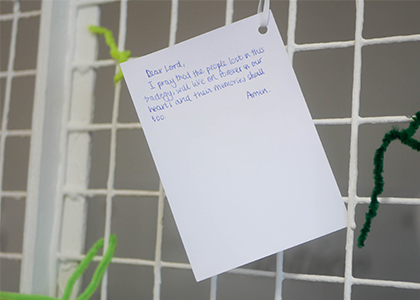 Dear Lord,
I pray that the people lost in this
tradegy, will live on forever in our
hearts and their memories shall
too.
Amen.